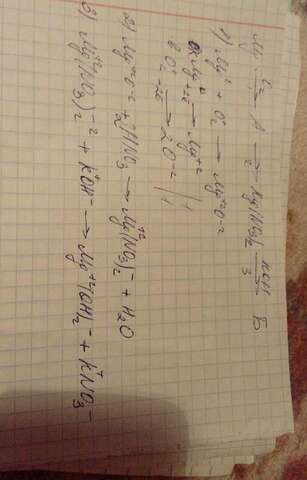 Mg →(O₂) A →(2) Mg(NO₃)₂ →(KOH, 3) Б
1) Mg⁰ + O₂⁰ → Mg⁺²O⁻²
Mg⁰ -2e → Mg⁺² | 1
O₂⁰ → 2O⁻² | 1
2) Mg⁺²O⁻² + 2HNO₃ → Mg⁺²(NO₃)₂⁻ + H₂O
3) Mg⁺²(NO₃)₂⁻ + K⁺OH⁻ → Mg⁺²(OH)₂⁻ + K⁺NO₃⁻